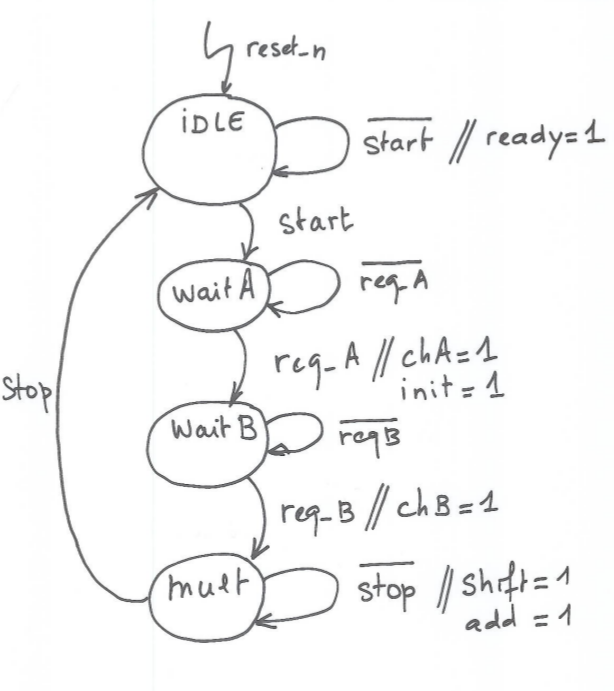 reset_n
iDLE
start // ready=1
start
wait A
req_A
req_A // chA=1
init=1
Stop
Wait B
reqB
req_B // chB=1
mult
stop // Shift=1
add =1